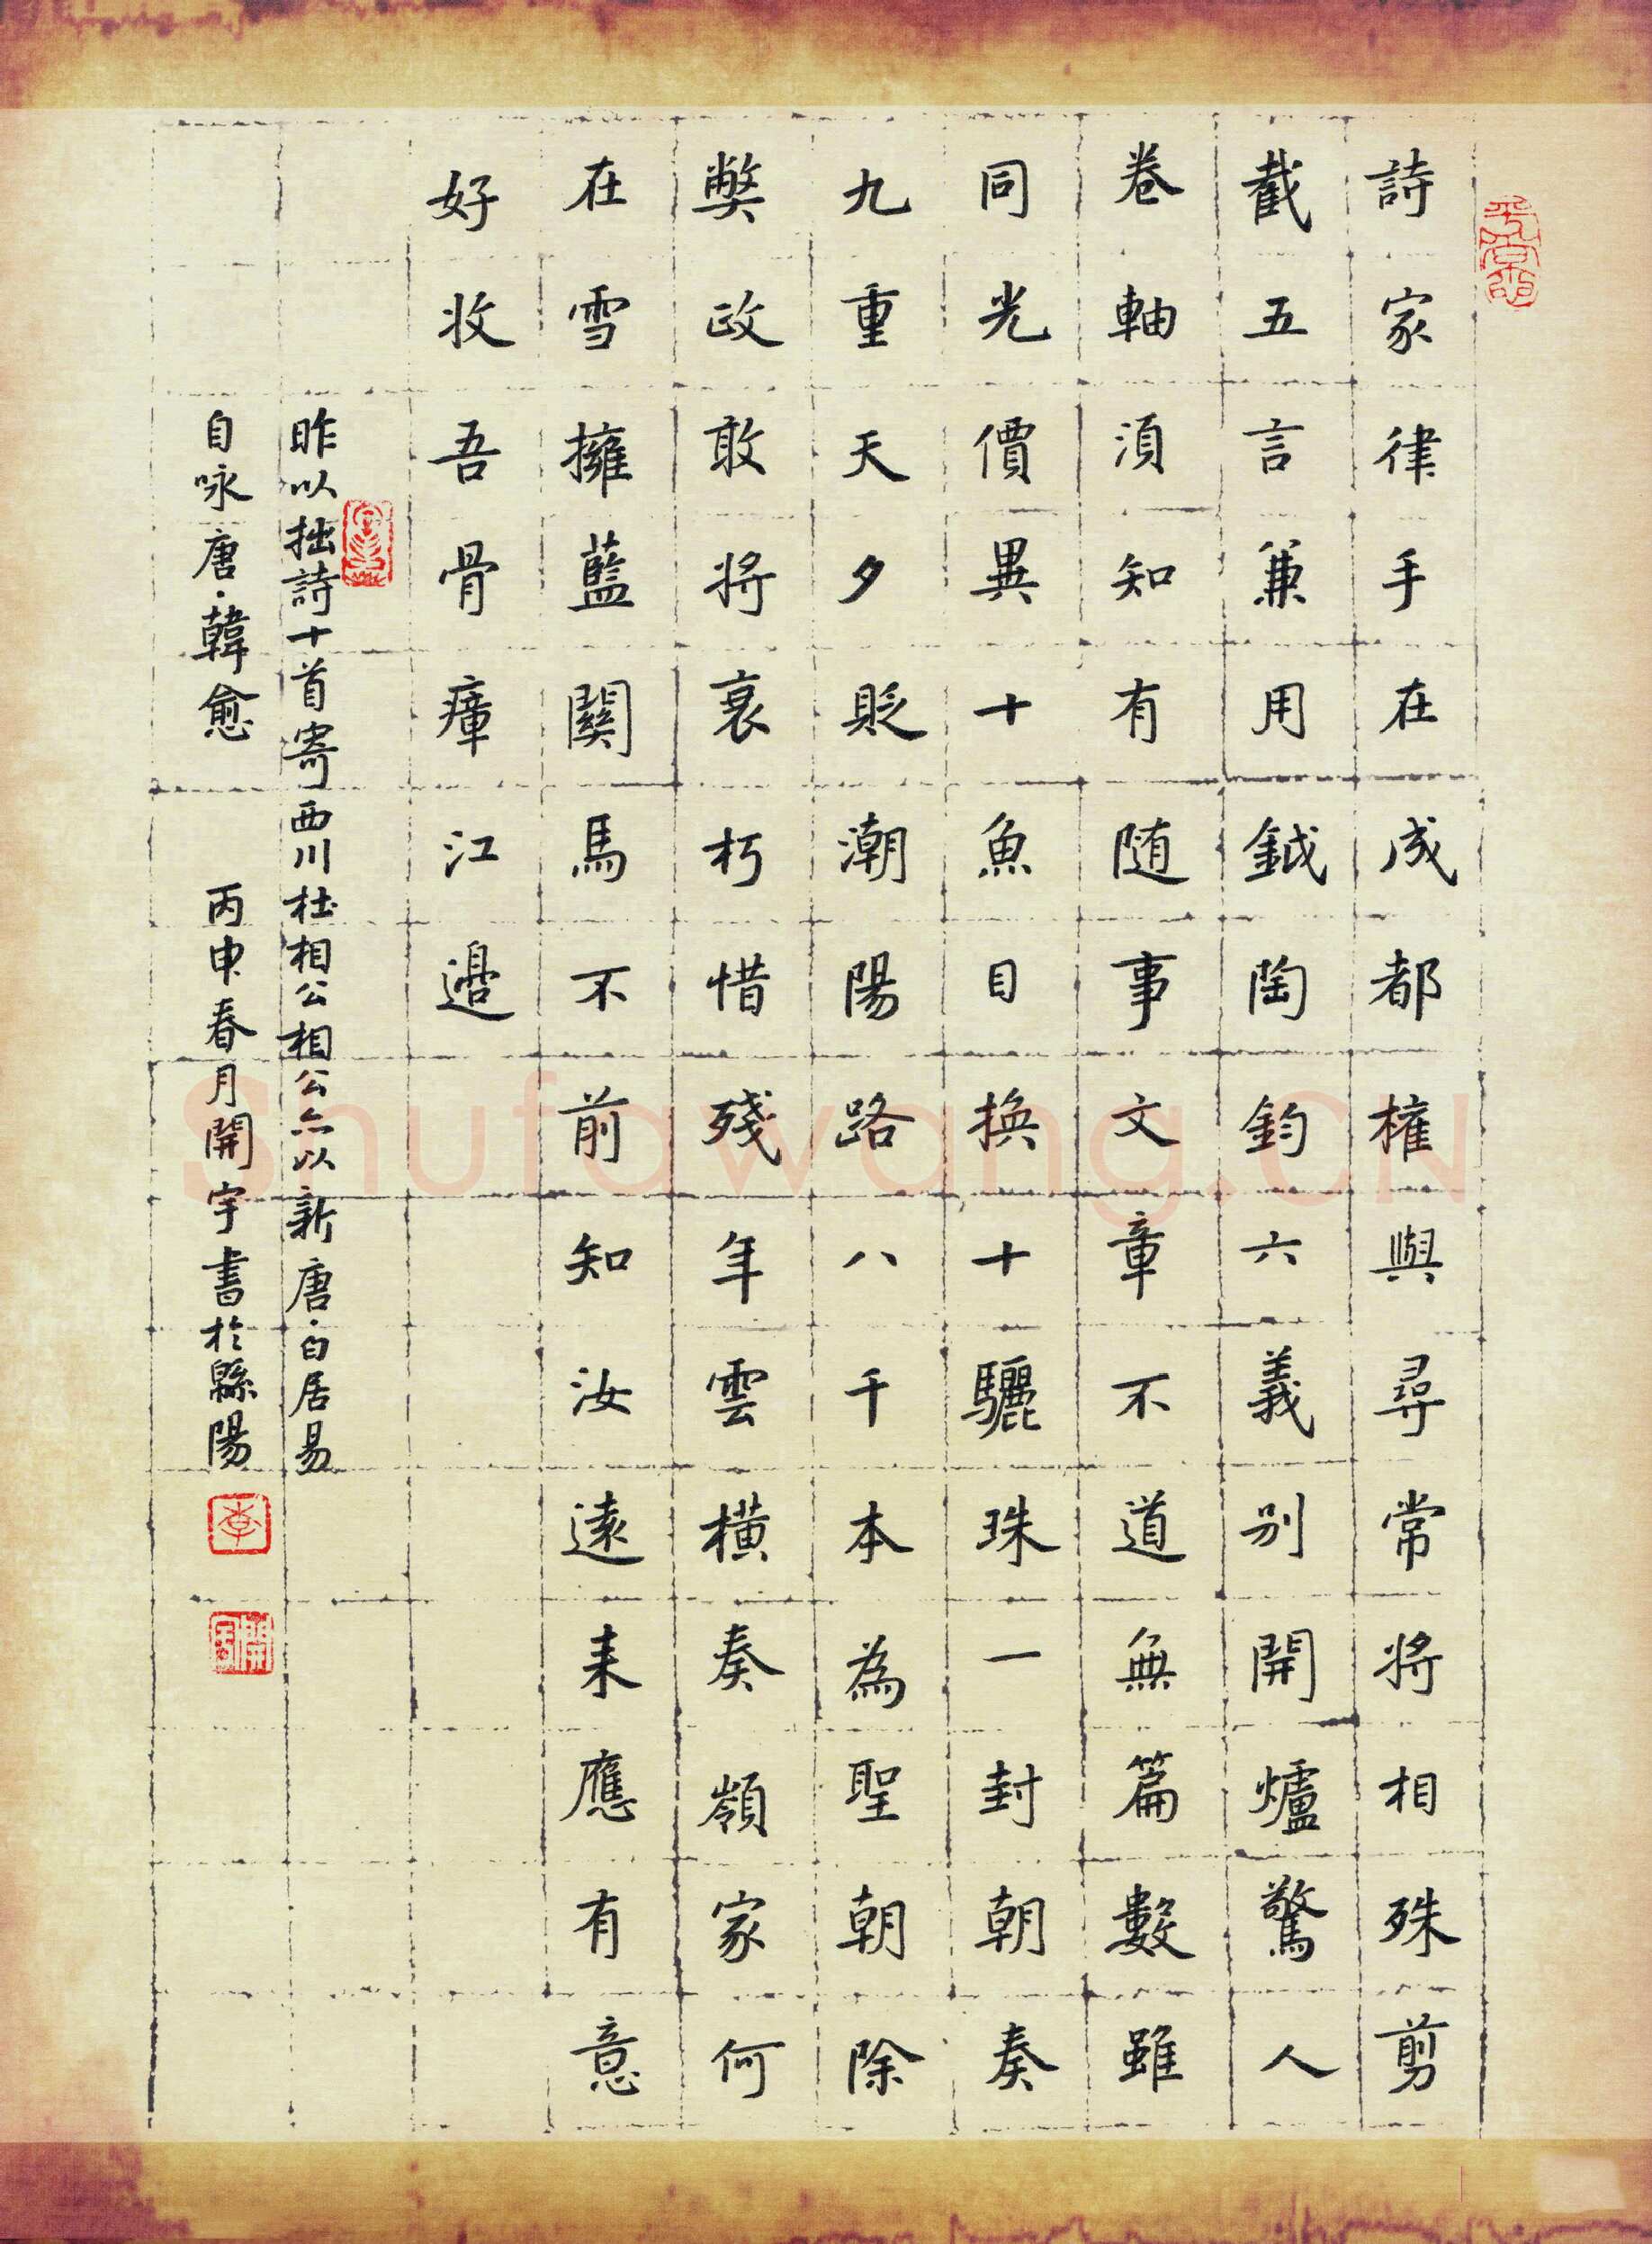 詩家律手在成都權與尋常將相殊剪
截五言兼用鉞陶鈞六義別開爐驚人
卷軸須知有随事文章不道無篇數雖
同光價異十魚目換十驪珠一封朝奏
九重天夕貶潮陽路八千本為聖朝除
弊政敢將衰朽惜殘年雲橫秦嶺家何
在雪擁藍關馬不前知汝遠来應有意
好收吾骨瘴江邊
昨以拙詩十首寄西川杜相公相公亦以新唐·白居易
自咏唐·韓愈 丙申春月開宇書於緜陽
李
Shufawang.CN